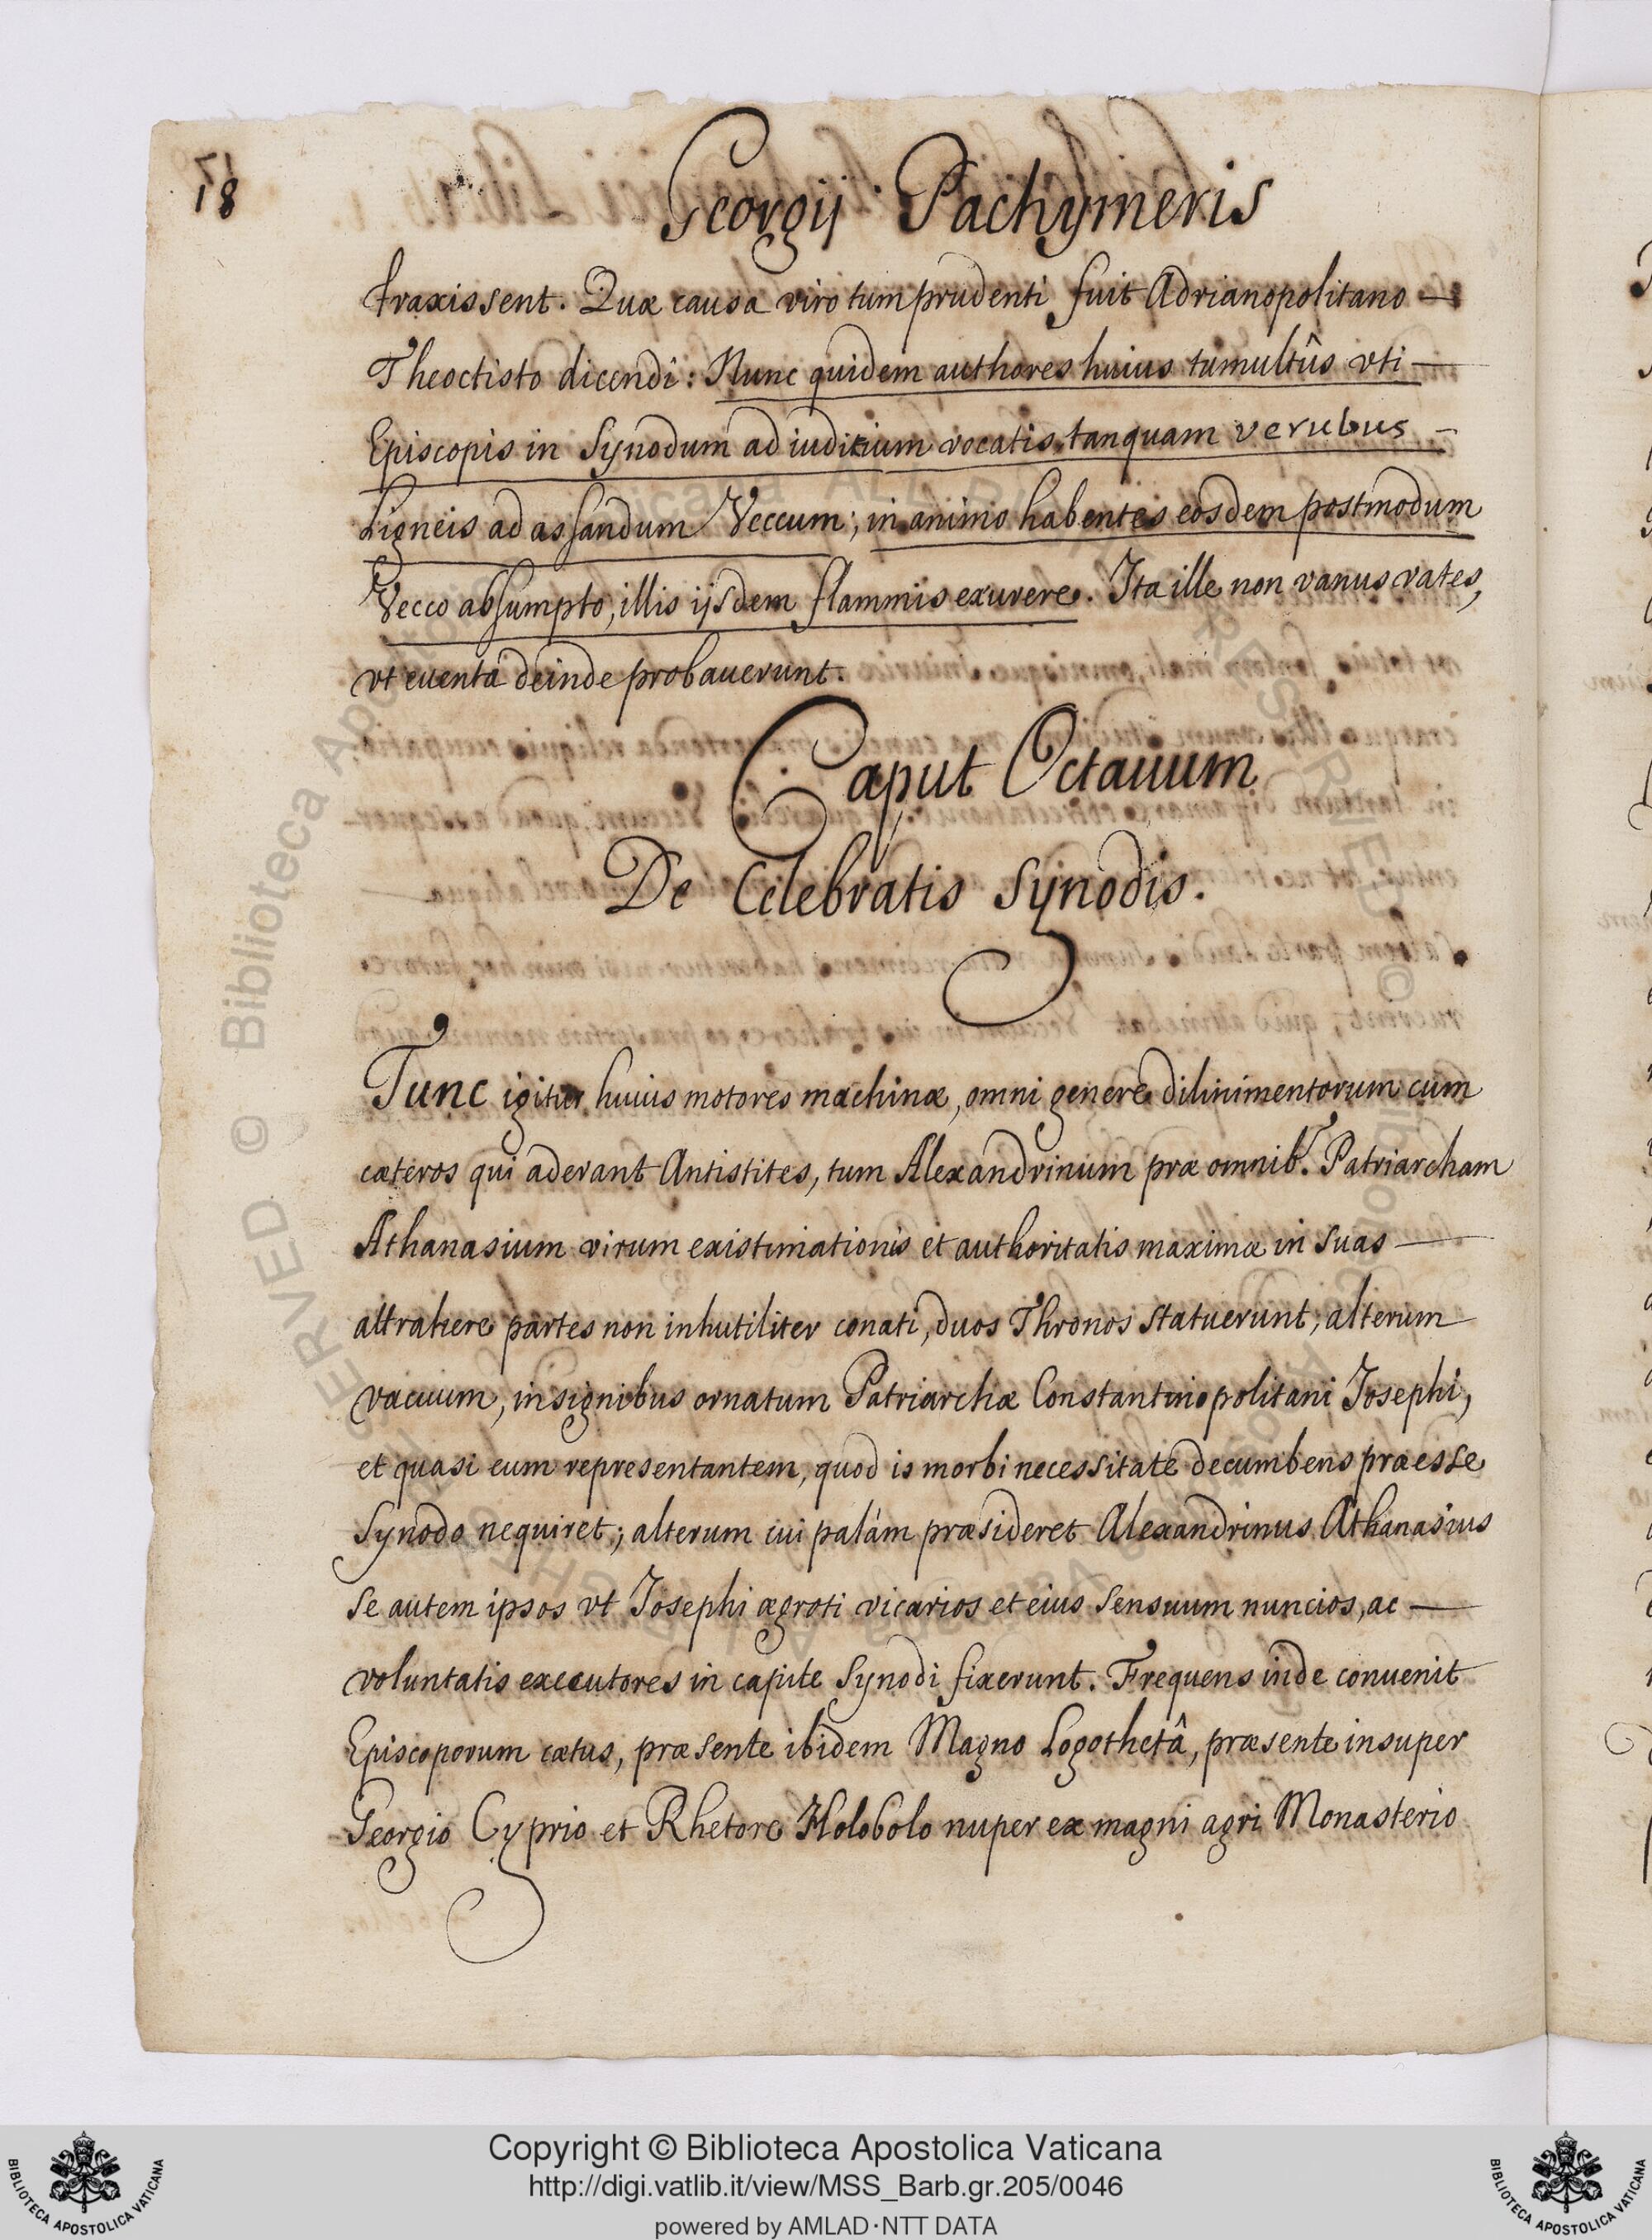 18
Georgij Pachymeris
traxissent. Quæ causa viro tum prudenti fuit Adrianopolitano —
Theoctisto dicendi: Nunc quidem authores huius tumultûs vti —
Episcopis in Synodum ad iuditium vocatis, tanquam verubus —
Ligneis ad assandum Veccum; in animo habentes eosdem postmodum
Vecco absumpto, illis ijsdem flammis exurere. Ita ille non vanus vates,
vt euenta deinde probauerunt.
Caput Octauum
De Celebratis Synodis.
Tunc igitur huius motores machinæ, omni genere dilinimentorum cum
cæteros qui aderant Antistites, tum Alexandrinum præ omnib. Patriarcham
Athanasium virum existimationis et authoritatis maximæ in suas —
attrahere partes non inhutiliter conati, duos Thronos statuerunt; alterum
vacuum, insignibus ornatum Patriarchæ Constantinopolitani Josephi,
et quasi eum representantem, quod is morbi necessitate decumbens præesse
Synodo nequiret; alterum cui palám præsideret Alexandrinus Athanasius
se autem ipsos vt Josephi ægroti vicarios et eius sensuum nuncios, ac —
voluntatis executores in capite Synodi fixerunt. Frequens inde conuenit
Episcoporum cætus, præsente ibidem Magno Logothetâ, præsente insuper
Georgio Cyprio et Rhetore Holobolo nuper ex magni agri Monasterio
Copyright © Biblioteca Apostolica Vaticana
http://digi.vatlib.it/view/MSS_Barb.gr.205/0046
powered by AMLAD·NTT DATA
BIBLIOTECA APOSTOLICA VATICANA
BIBLIOTECA APOSTOLICA VATICANA